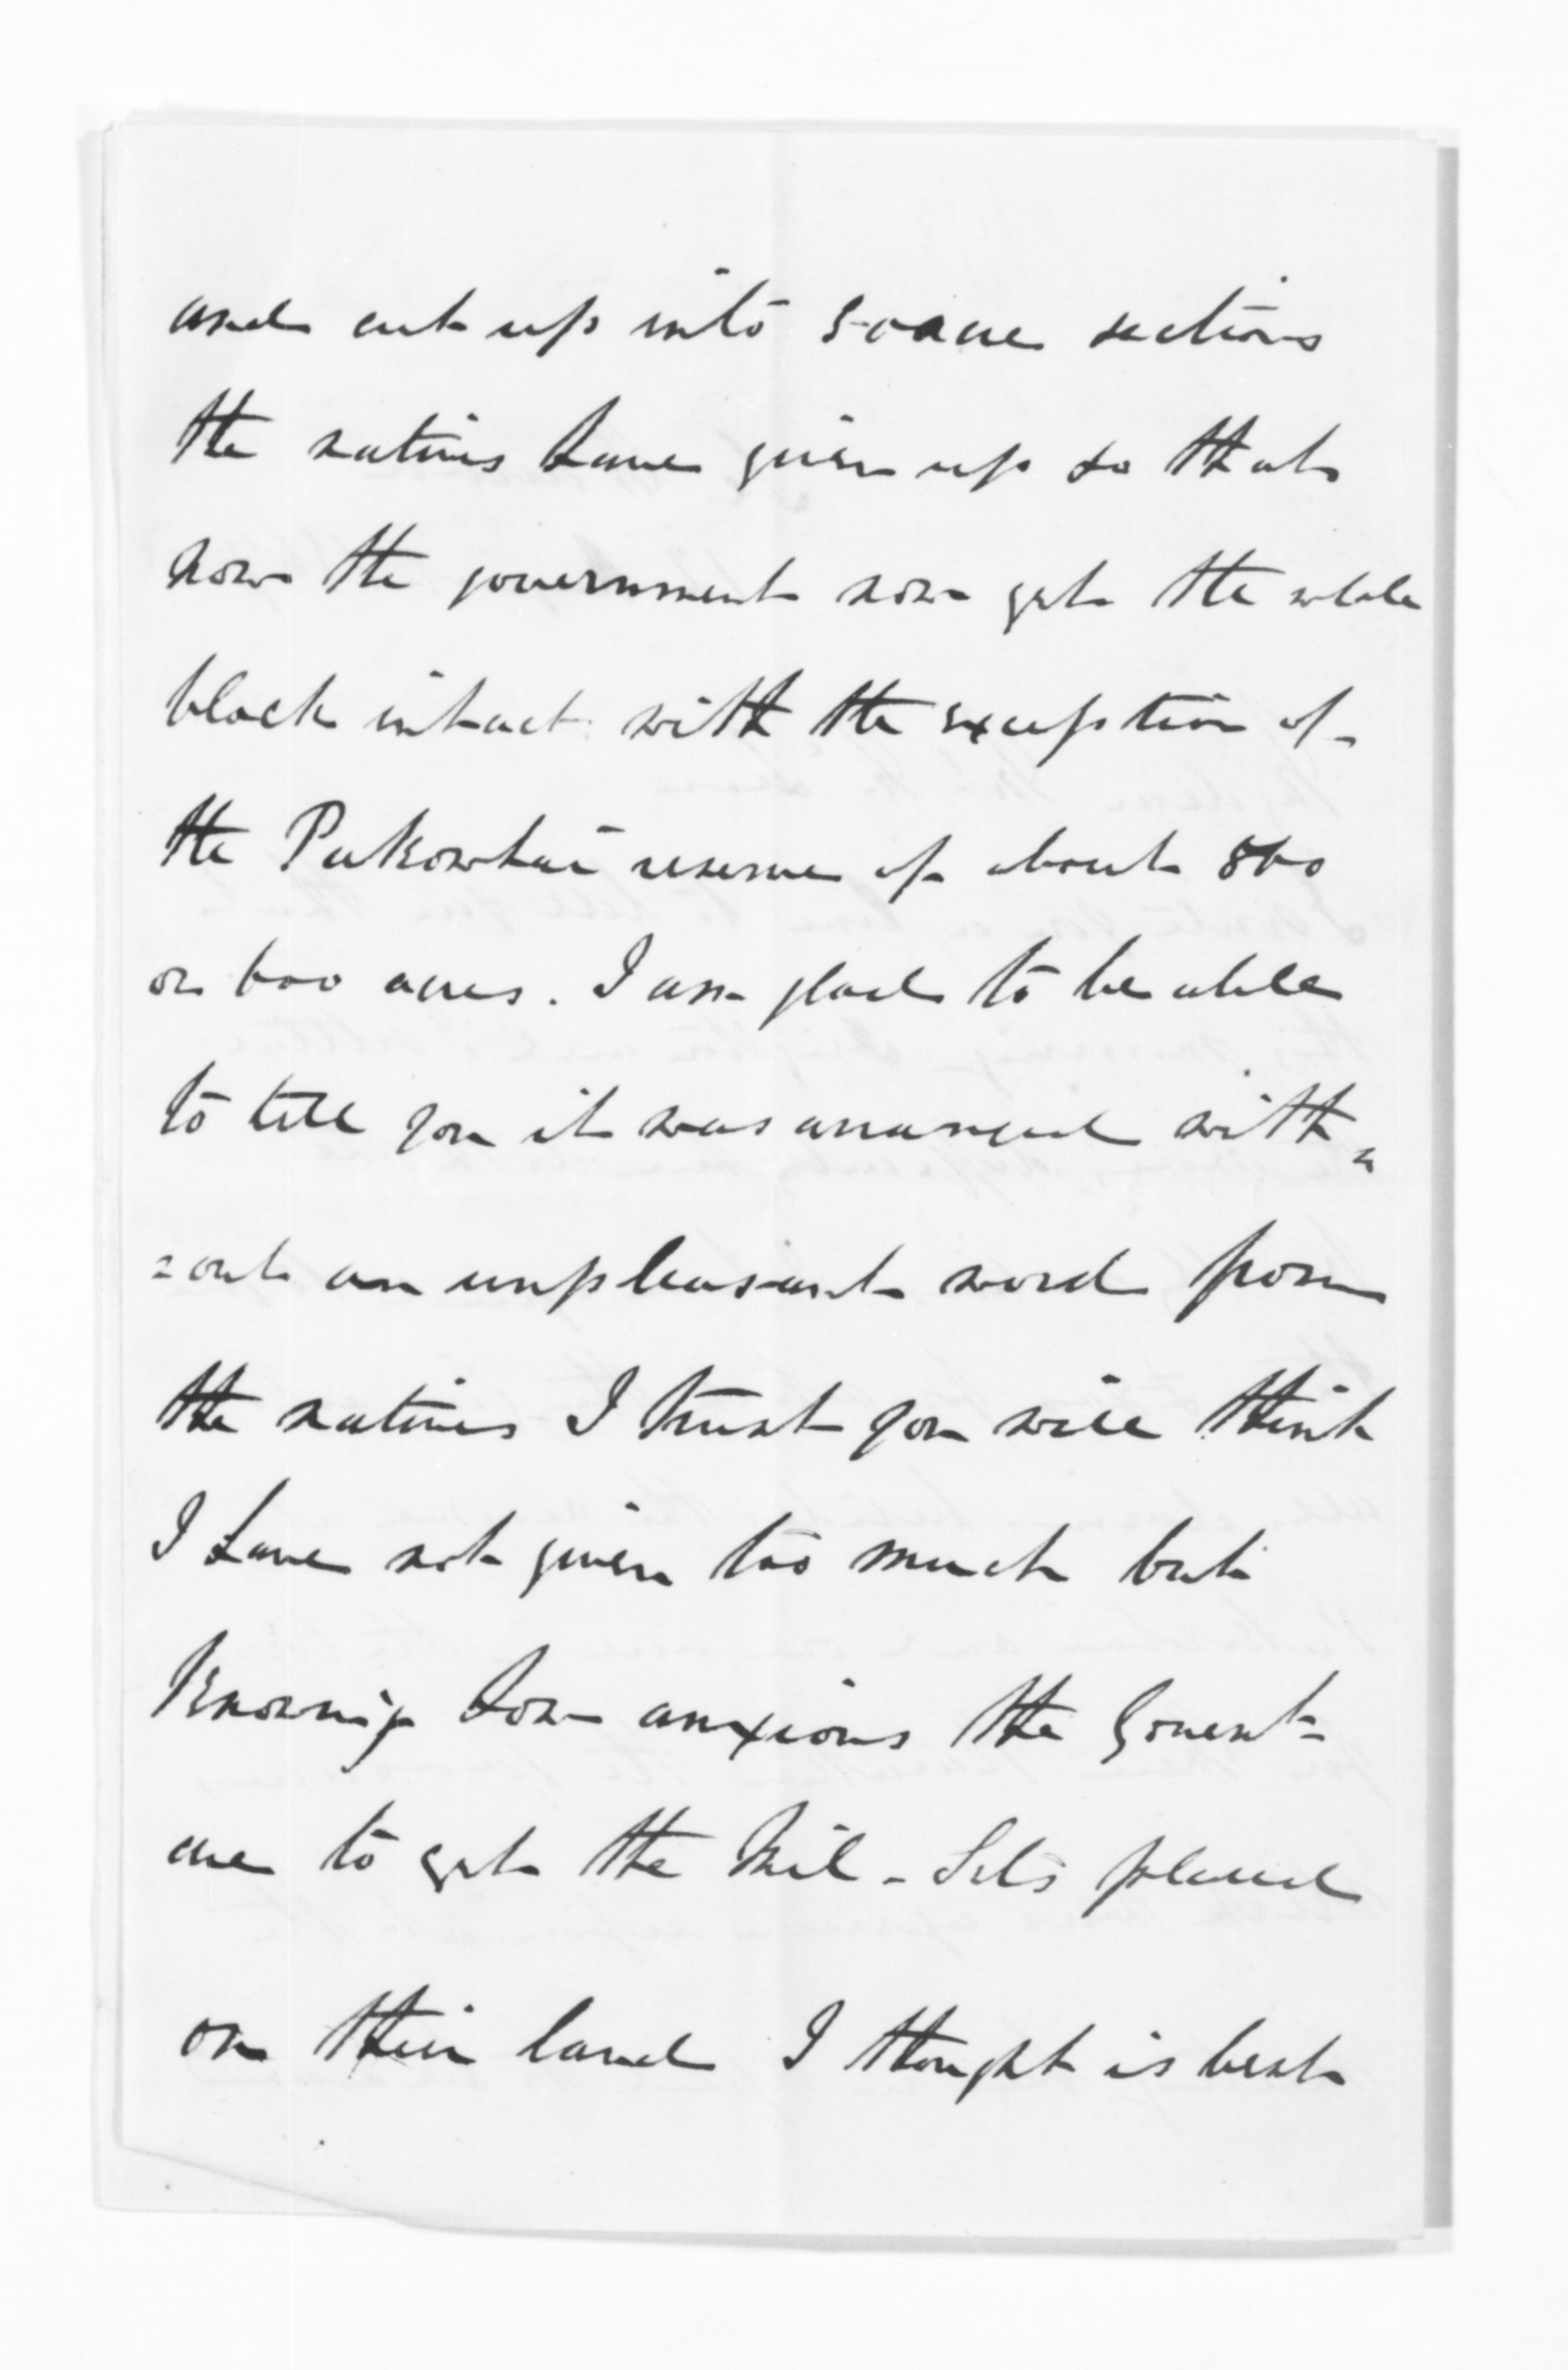 and cut up into 50 acre sections
the natives have given up so that
now the government now get the whole
block intact with the exception of
the Pukowhai reserve of about
or 600 acres. I am glad to be able
to tell you it was arranged with=
=out an unpleasant word from
the natives I trust you will think
I have not given too much but
knowing how anxious the Govent
are to get the Mil. Sets placed
on their land I thought is best